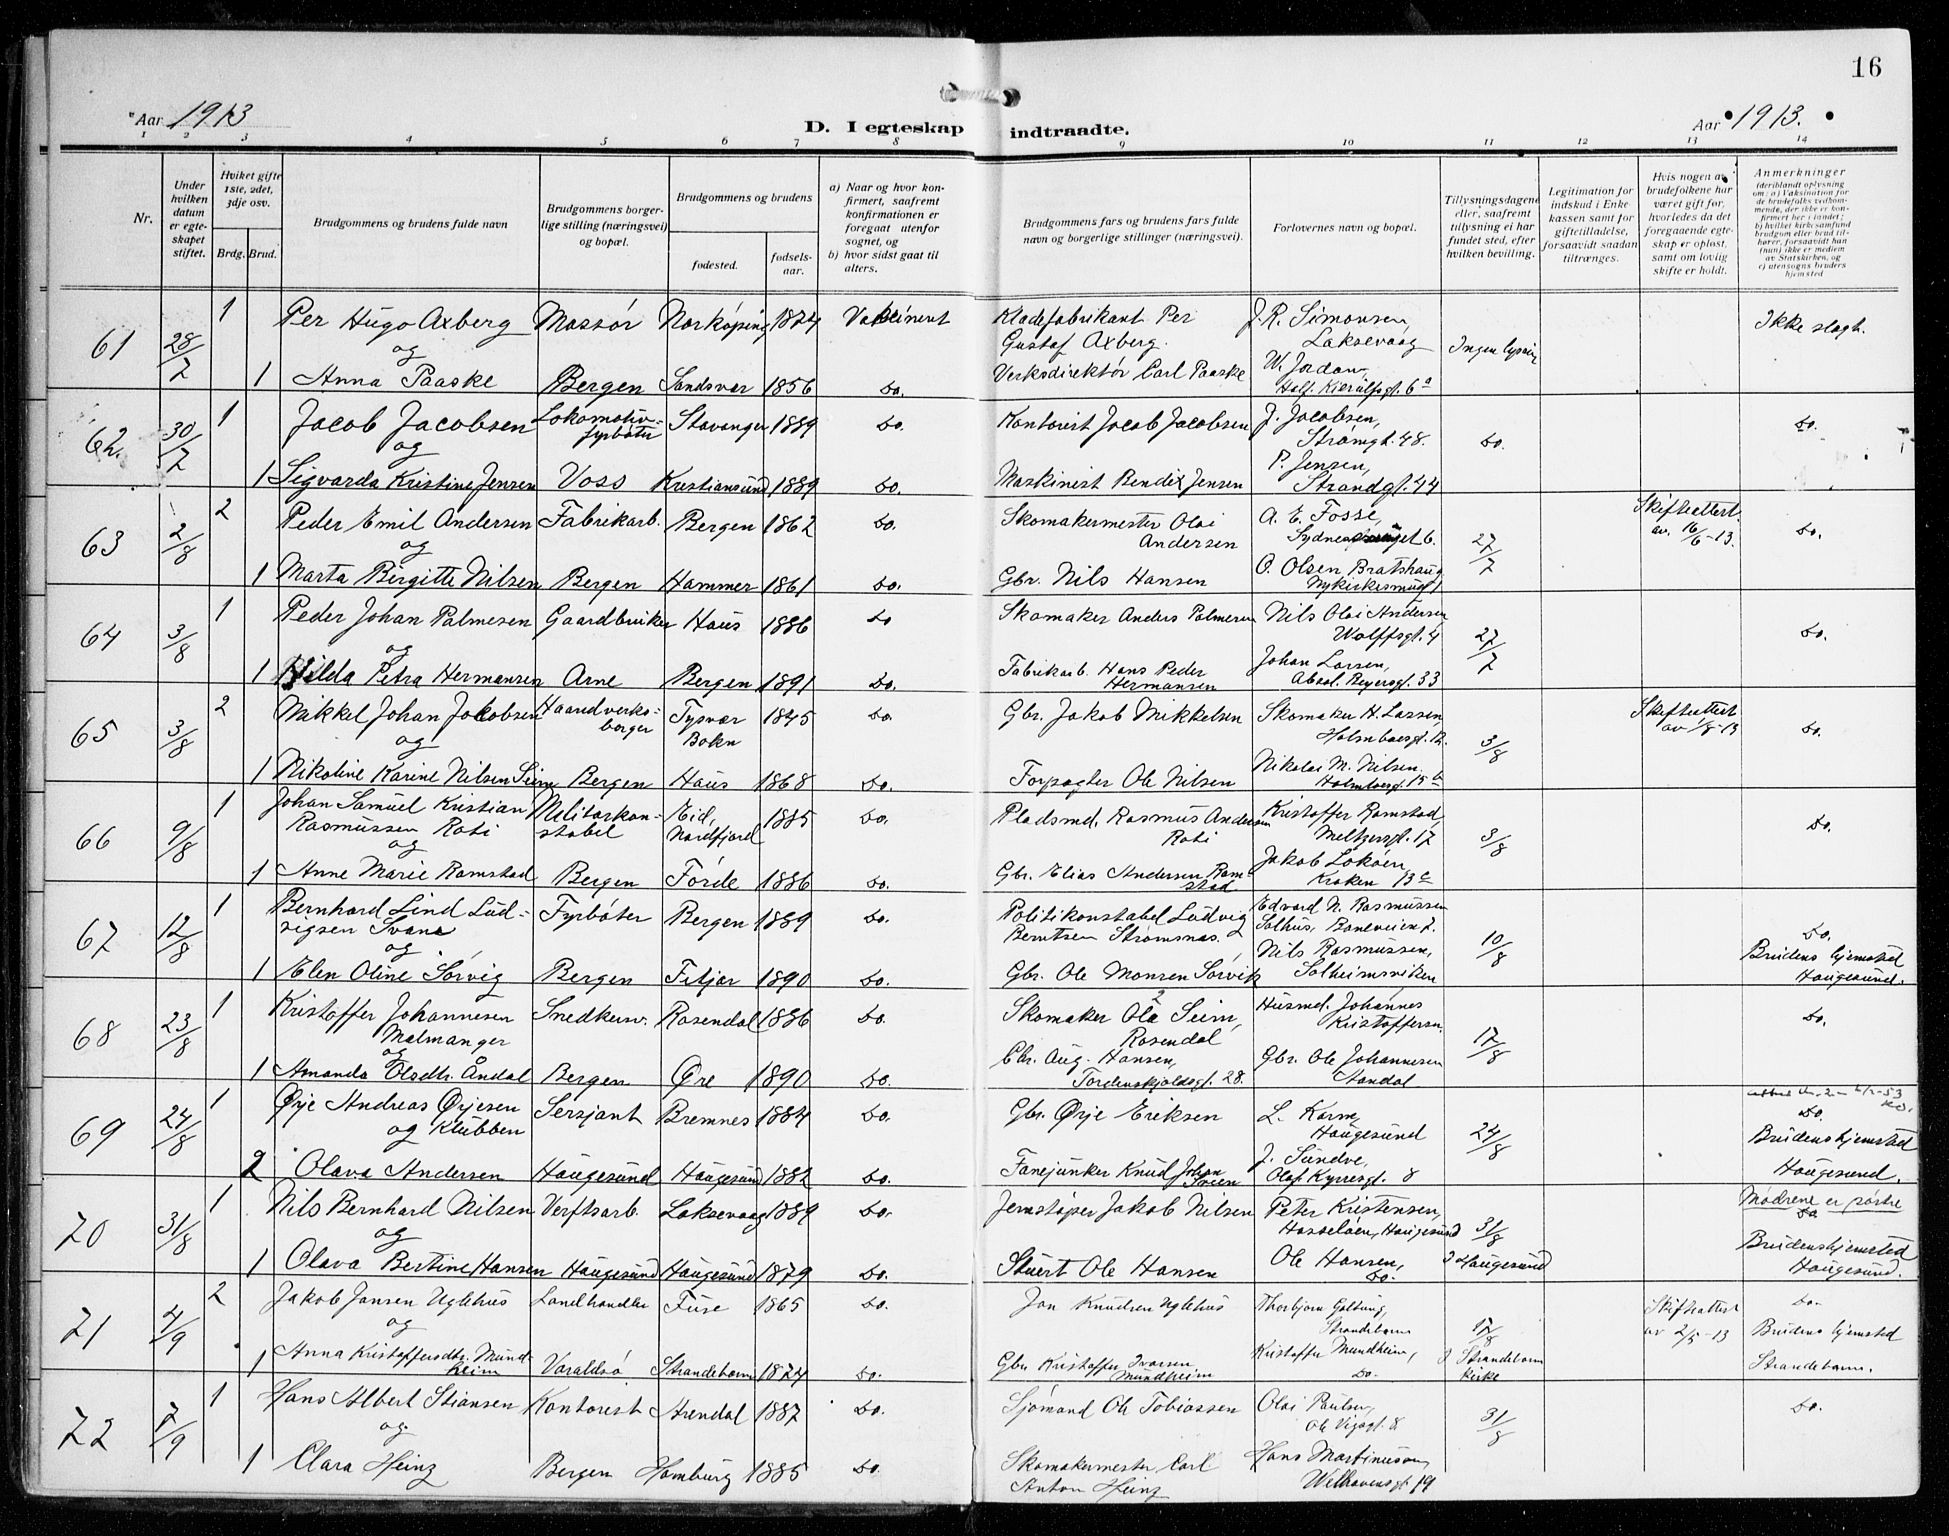 16
Aar 1913
D. I egteskap indtraadte.
Aar 1913.
1 2 3 4 5 6 7 8 9 10 11 12 13 14
Nr.
Under hvilken datum er egteskapet stiftet.
Hviket gifte 1ste, 2det, 3dje osv.
Brdg. Brud.
Brudgommens og brudens fulde navn
Brudgommens borgerlige stilling (næringsvei) og bopæl.
Brudgommens og brudens
fødested.
fødselsaar.
a) Naar og hvor konfirmert, saafremt konfirmationen er foregaat utenfor sognet, og
b) hvor sidst gaat til alters.
Brudgommens fars og brudens fars fulde navn og borgerlige stillinger (næringsvei).
Forlovernes navn og bopæl.
Tillysningsdagene eller, saafremt tillysning ei har fundet sted, efter hvilken bevilling.
Legitimation for indskud i Enkekassen samt for giftetilladelse, forsaavidt saadan tiltrænges.
Hvis nogen av brudefolkene har været gift før, hvorledes da det foregaaende egteskap er opløst, samt om lovlig skifte er holdt.
Anmerkninger
(deriblandt oplysning om: a) Vaksination for de brudefolks vedkommende, der ikke er konfirmert her i landet; b) hvilket kirkesamfund brudgom eller brud tilhører, forsaavidt han (hun) ikke er medlem av Statskirken, og c) utensogns bruders hjemsted
61 28/7 1 Per Hugo Axberg Massör Norköping 1874 Vaksinert Kladefabrikant Per Gustaf Axberg. J. R. Simonsen, Laksevaag Ingen lysning Ikke slagt.
og
1 Anna Paaske Bergen Sandsvær 1856 Do. Verksdirektör Carl Paaske W. Jordan, Half. Kjerulfsgt. 6a
62. 30/7 1 Jacob Jacobsen Lokomotivfyrböter Stavanger 1889 Do. Kontorist Jacob Jacobsen J. Jacobsen, Strömgt. 48. Do. Do.
og
1 Sigvarda Kristine Jensen Voss Kristiansund 1889 Do. Maskinist Bendix Jensen P. Jensen, Strandgt. 44
63 2/8 2 Peder Emil Andersen Fabrikarb. Bergen 1862 Do. Skomakermester Oloi Andersen A. E. Fosse, 6. 27/7 Skifteattest av 16/6-13. Do.
og
1 Marta Birgitte Nilsen Bergen Hammer 1861 Do. Gbr. Nils Hansen O. Olsen Bratshaug
64 3/8 1 Peder Johan Palmesen Gaardbruker Haus 1886 Do Skomaker Anders Palmesen Nils Oloi Andersen Wolffsgt. 4 27/7 Do.
og
1 Hilda Petra Hermansen Arne Bergen 1891 Do. Fabrikarb. Hans Peder Hermansen Johan Larsen, Absal. Beyersgt. 33
65 3/8 2 Mikkel Johan Jacobsen Haandverksborger Tysvær Bokn 1845 Do. Gbr. Jakob Mikkelsen Skomaker H. Larsen, Holmboesgt. 12. 3/8 Skifteattest av 1/8-13 Do.
og
1 Nikoline Karine Nilsen Seim Bergen Haus 1868 Do. Forpagter Ole Nilsen Nikolai M. Nilsen, Holmboesgt. 15b
66 9/8 1 Johan Samuel Kristian Rasmussen Roti Militærkonstabel Eid, Nordfjord 1885 Do. Pladsmd. Rasmus Andersen Roti Kristoffer Ramstad, Meltzersgt. 17 3/8 Do.
og
1 Anne Marie Ramstad Bergen Förde 1886 Do. Gbr. Elias Andersen Ramstad Jakob Loköen, Kroken 13c
67 12/8 1 Bernhard Lind Ludvigsen Svane Fyrböter Bergen 1889 Do. Politikonstabel Ludvig Berntsen Strömsnæs. Edvard N. Rasmussen Solhus, Baneveien 7. 10/8 Do.
og Nils Rasmussen, Solheimsviken Brudens hjemsted Haugesund.
1 Elen Oline Sörvig Bergen Fitjar 1890 Do. Gbr. Ole Monsen Sörvik
68 23/8 1 Kristoffer Johannesen Malmanger Snedkersv. Rosendal 1886 Do. Skomaker Ola Seim, Rosendal Husmd. Johannes Kristoffersen 17/8 Do.
og
1 Amanda Olsdtr. Åndal Bergen Øre 1890 Do. Gbr. Aug. Hansen, Tordenskjoldsgt. 28. Gbr. Ole Johannesen Aandal
69 24/8 1 Ørje Andreas Ørjesen Klubben Sersjant Bremnes 1884 Do. Gbr. Ørje Eriksen L. Karm, Haugesund 24/8 Do.
og Brudens hjemsted Haugesund.
2 Olava Andersen Haugesund Haugesund 1882 Do. Fanejunker Knud Johan Sveen J. Sundve, Olaf Kyrresgt. 8
70 31/8 1 Nils Bernhard Nilsen Verftsarb. Laksevaag 1889 Do. Jernstöper Jakob Nilsen Peter Kristensen, Hasseloen, Haugesund 31/8 Mødrene er søstre Do
og Brudens hjemsted Haugesund.
1 Olava Bertine Hansen Haugesund Haugesund 1879 Do. Stuert Ole Hansen Ole Hansen, Do. I Haugesund
71 4/9 2 Jakob Jansen Uglehus Landhandler Fuse 1865 Do. Jan Knudsen Uglehus Thorbjørn Galtung, Strandebarm 17/8 Skifteattest av 2/5-13 Do.
og Brudens hjemsted Strandebarm.
1 Anna Kristoffersdtr. Mundheim Varaldsö Strandebarm 1874 Do. Gbr. Kristoffer Ivarsen Mundheim Kristoffer Mundheim, Do. I Strandebarm kirke
72 7/9 1 Hans Albert Stiansen Kontorist Arendal 1887 Do. Sjömand Ole Tobiassen Oloi Paulsen, Ole Vigsgt. 8 31/8 Do.
og
1 Clara Heinz Bergen Hamburg 1885 Do. Skomakermester Carl Anton Heinz Hans Martinussen, Welhavensgt. 19